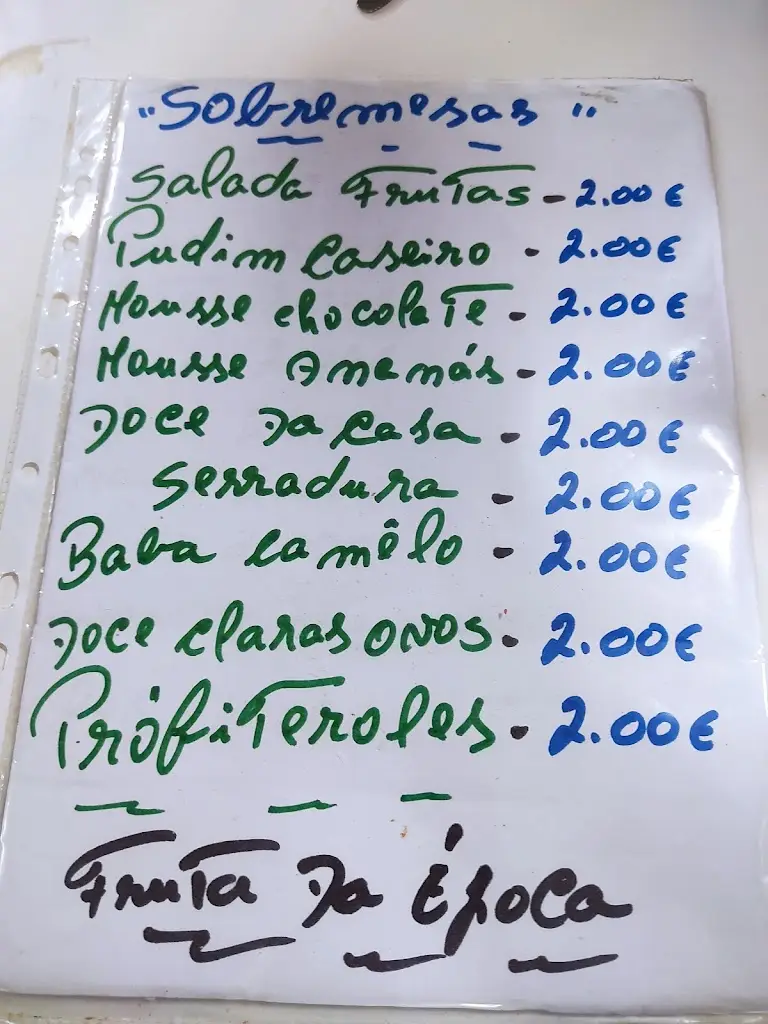 "Sobremesas"
Salada Frutas - 2.00€
Pudim Caseiro - 2.00€
Mousse chocolate - 2.00€
Mousse Ananás - 2.00€
Doce Da Casa - 2.00€
Serradura - 2.00€
Baba camêlo - 2.00€
Doce claras ovos - 2.00€
Prófiteroles - 2.00€
Fruta Da Época